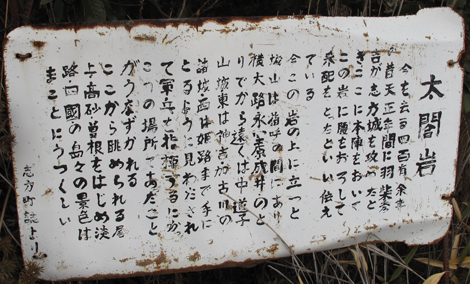 太閤岩
今を去る四百有余年
昔天正年間に羽柴秀
吉が志方城を攻めたと
きここに本陣をおいて
この岩に腰をおろして
采配をとったといい伝え
ている
今この岩の上に立つと
城山は指呼の間にあり
横大路永室成井のと
りでから遠くは中道子
山城東は神吉加古川の
諸城西は姫路まで手に
とるように見わたされ
て軍兵を指揮するにかっ
こうの場所であったこと
がうなずかれる
ここから眺められる尾
上高砂曽根をはじめ淡
路四國の島々の景色は
まことにうつくしい
志方町誌より